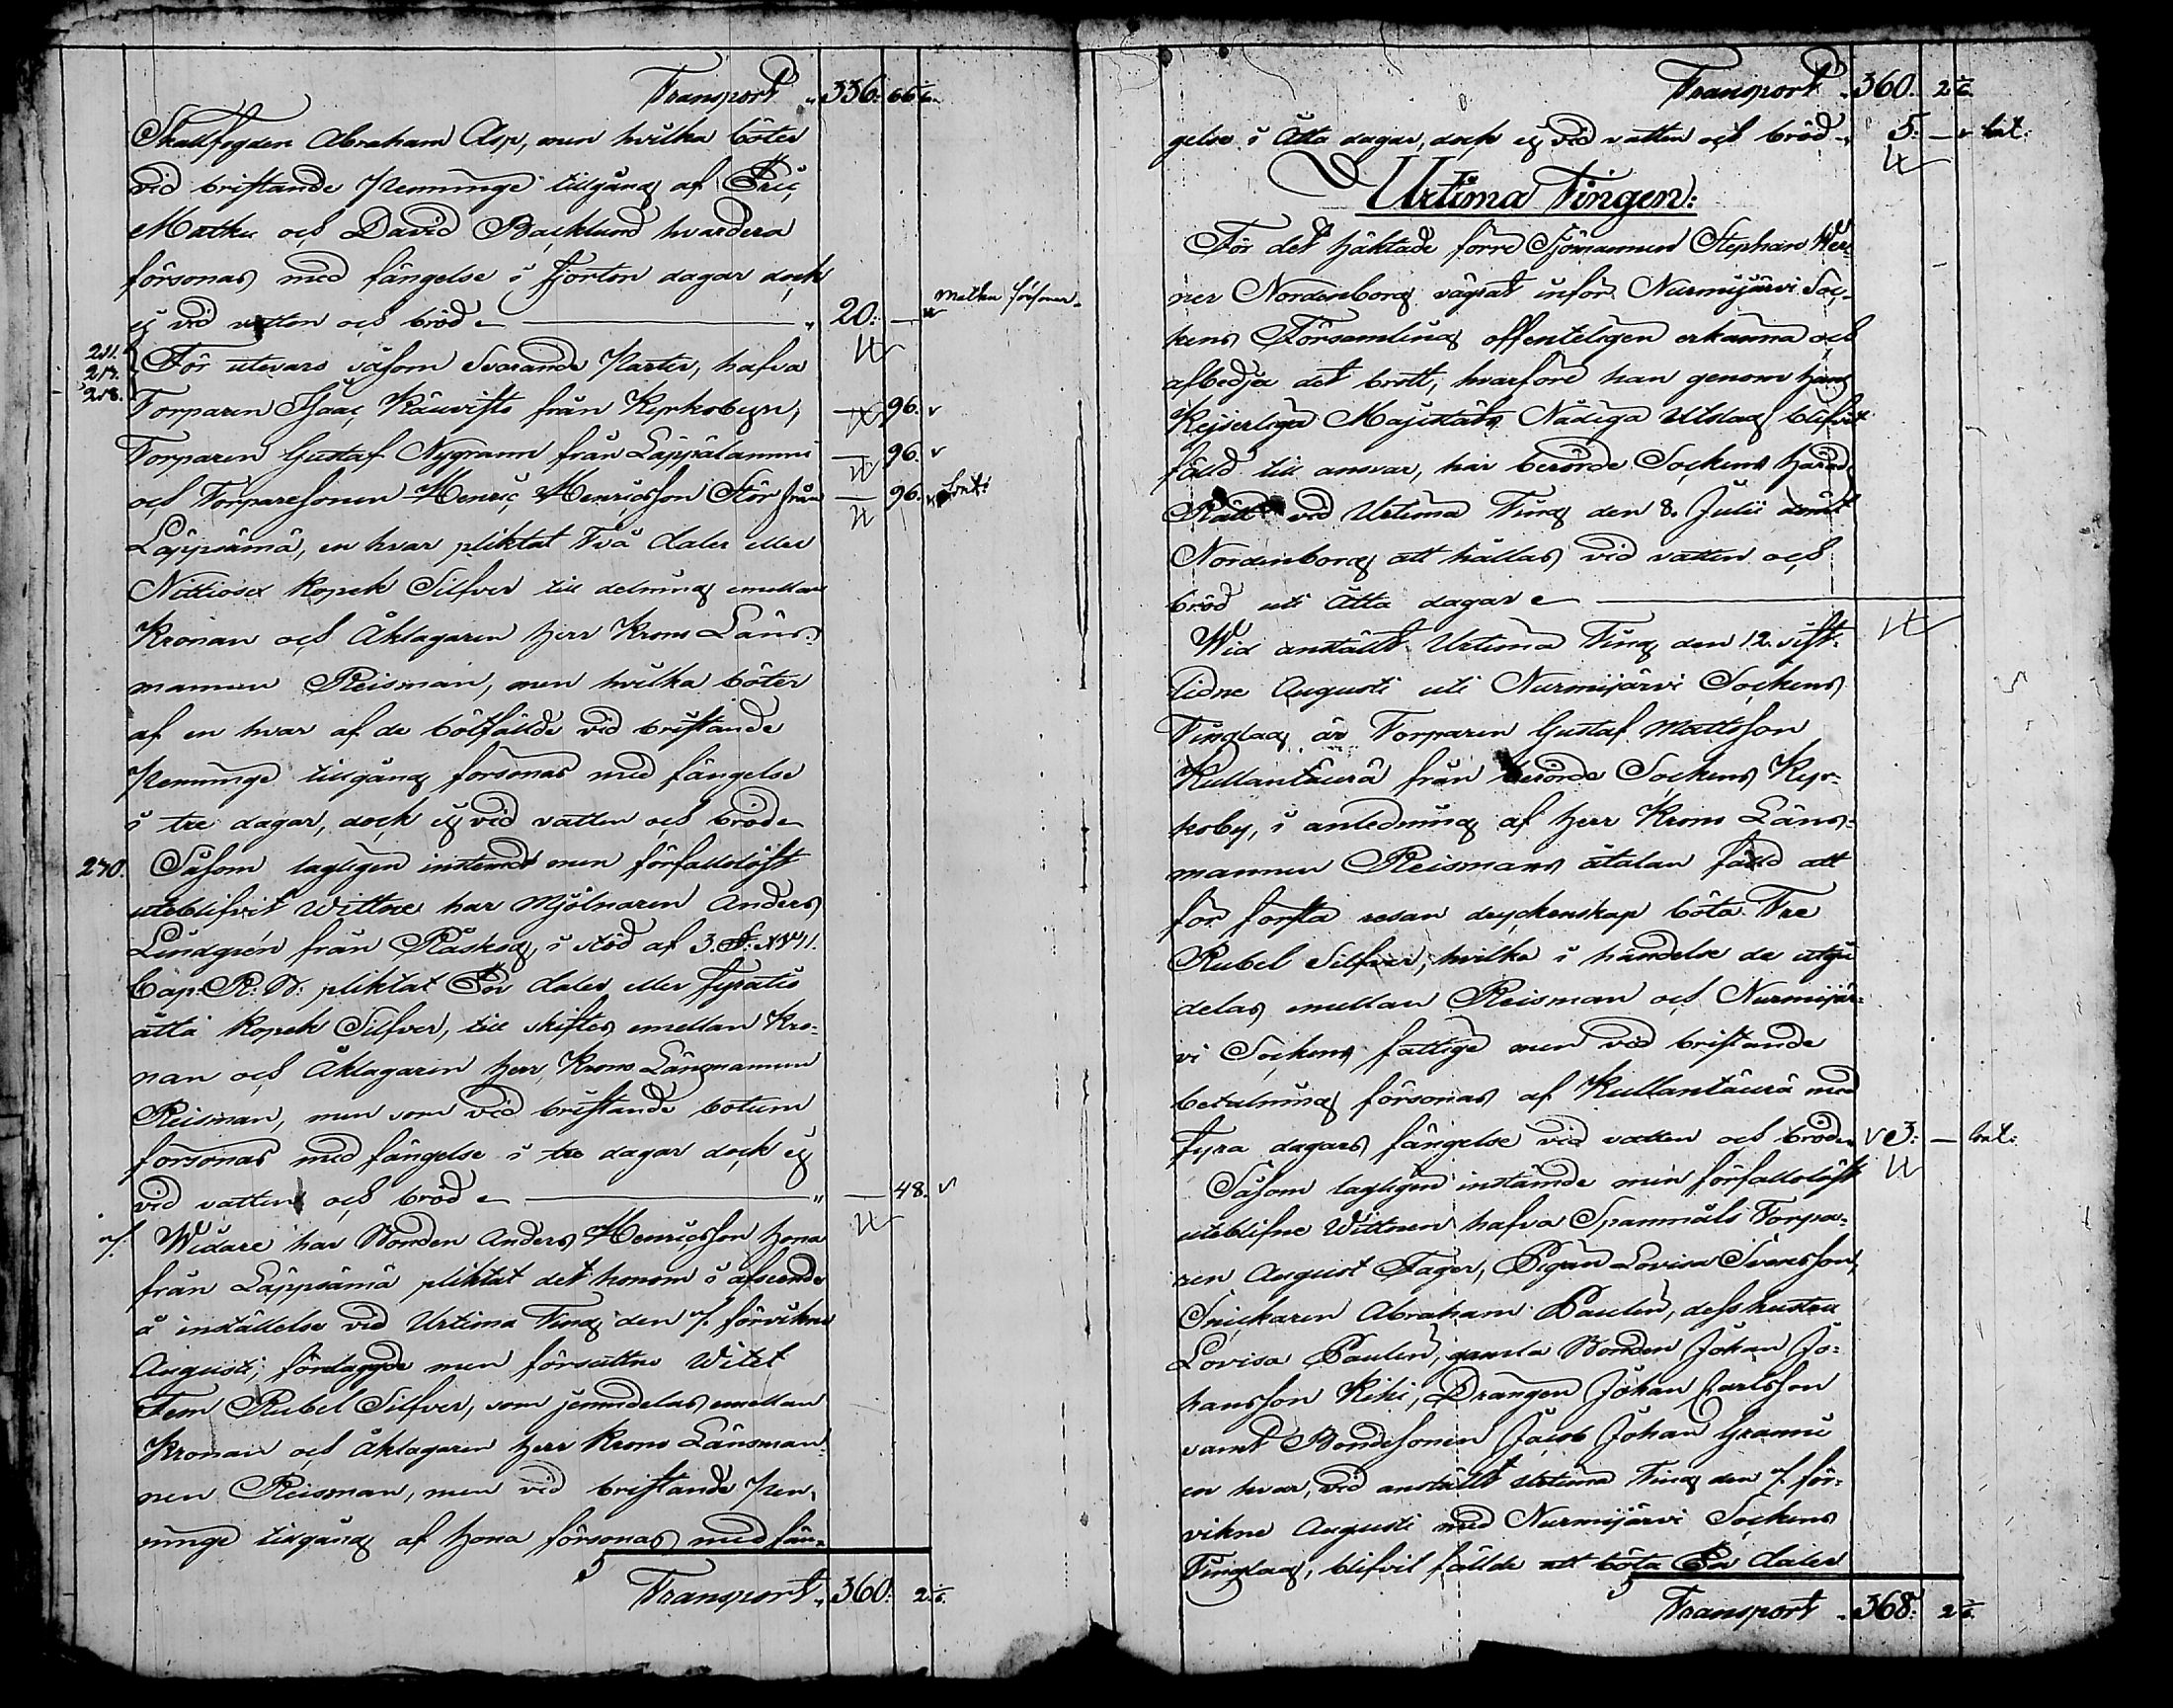 Transport „ 336: 66 2/6
Skallfogden Abraham Asp, men hvilka böter
vid bristande Penninge tillgång af Eric
Matku och David Backlund hvardera
försonas med fängelse i fjorton dagar dock
ej vid vatten och bröd „ 20: — Matku försonar
211. 217. 218. För utevaro såsom Svarande Parter, hafva
Torparen Isaac Käuvistö från Kyrkobyn, — 96.
Torparen Gustaf Nygrann från Lappälammi — 96.
och Torparesonen Henric Henricsson Stör från — 96.
Läppsämä, en hvar pliktat Två daler eller
Nittiosex Kopek Silfver till delning emellan
Kronan och Åklagaren Herr Krono Läns-
mannen Reisman, men hvilka böter
af en hvar af de bötfällde vid bristande
Penninge tillgång försonas med fängelse
i tre dagar, dock ej vid vatten och bröd
270. Såsom lagligen instemdt men förfallolöst
uteblifvit Wittne har Mjölnaren Anders
Lindgrén från Råskog, i stöd af 3. §. XVII.
Cap. R: B: pliktat En daler eller fyratio
åtta Kopek Silfver, till skiftes emellan Kro-
nan och Åklagaren Herr Krono Länsmannen
Reisman, men som vid bristande botum
försonas med fängelse i tre dagar dock ej
vid vatten och bröd „ — 48.
Widare har Bonden Anders Henricsson Hona
från Läppsämä pliktat det honom i afseende
å inställelse vid Urtima Ting den förvikne
Augusti, förelagde men försuttne Witet
Fem Rubel Silfver, som jemndelas emellan
Kronan och Åklagaren Herr Krono Länsman-
nen Reisman, men vid bristande Pen-
ninge tillgång af Hona försonas med fän-
Transport „ 360: 2 2/6
Transport „ 360. 2 2/6
gelse i Åtta dagar, dock ej vid vatten och bröd „ 5: —
Urtima Tingen:
För det häktade förre Sjömannen Stephan Wer-
ner Nordenborg vägrat inför Nurmijärvi Soc-
kens Församling offenteligen erkänna och
afbedja det brott, hvarföre han genom Hans
Kejserliga Majestäts Nådiga Utslag blifvit
fälld till ansvar, har berörde Sockens Härads
Rätt vid Urtima Ting den 8. Julii dömt
Nordenborg att hållas vid vatten och
bröd uti Åtta dagar
Wid anstäldt Urtima Ting den 12. sist-
lidne Augusti uti Nurmijärvi Sockens
Tingslag är Torparen Gustaf Mattsson
Kullantäurä från berörde Sockens Kyr-
koby, i anledning af Herr Krono Läns-
mannen Reismans åtalan fälld att
för första resan dryckenskap böta Tre
Rubel Silfver, hvilka i händelse de utgå
delas emellan Reisman och Nurmijär-
vi Sockens fattige men vid bristande
betalning försonas af Kullantäurä med
fyra dagars fängelse vid vatten och bröd 3: —
Såsom lagligen instämde men förfallolöst
uteblifne Wittnen hafva Spannmåls Torpa-
ren August Fager, Pigan Lovisa Svensson,
Snickaren Abraham Paulin, dess hustru
Lovisa Paulin, gamla Bonden Johan Jo-
hansson Kihi, Drängen Johan Carlsson
samt Bondesonen Jacob Johan Grannu
en hvar, vid anstäldt Urtima Ting den för-
vikne Augusti med Nurmijärvi Sockens
Tingslag, blifvit fällde att böta En daler
Transport „ 368: 2 2/6